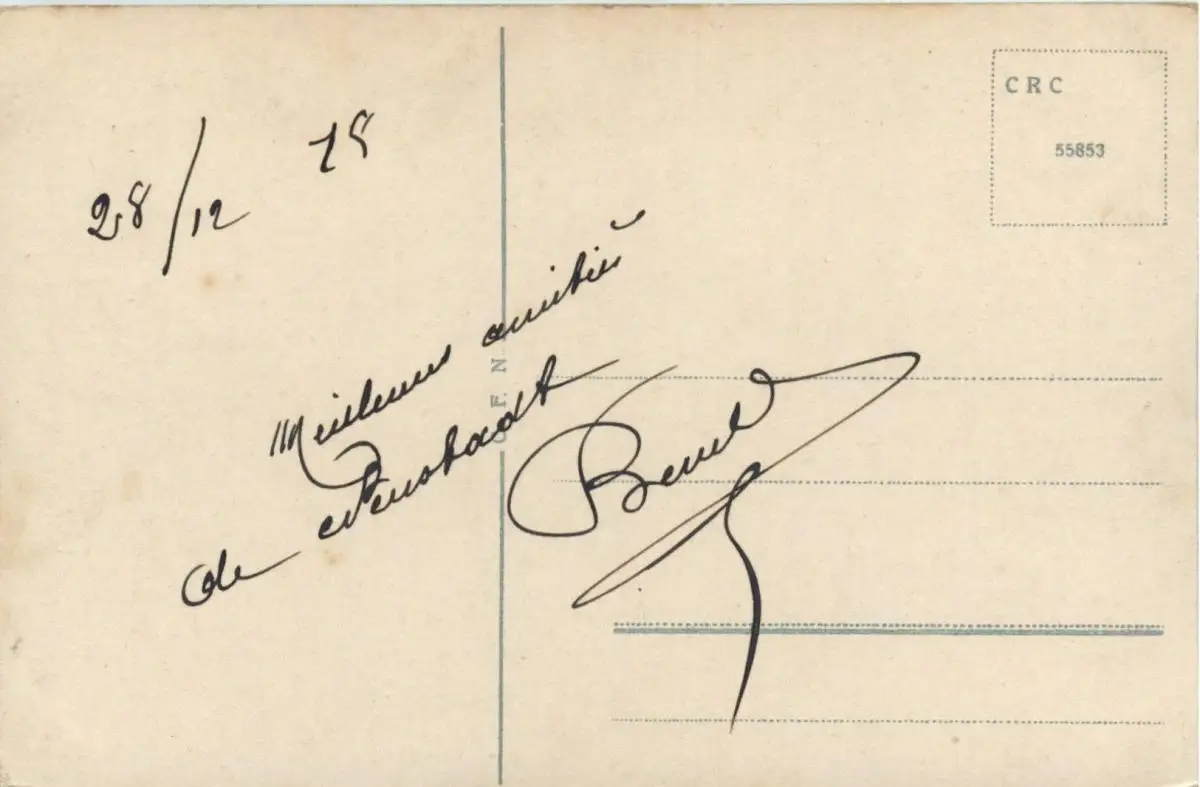 28/12 18
CRC
55853
Meilleures amitiés
de Neustadt